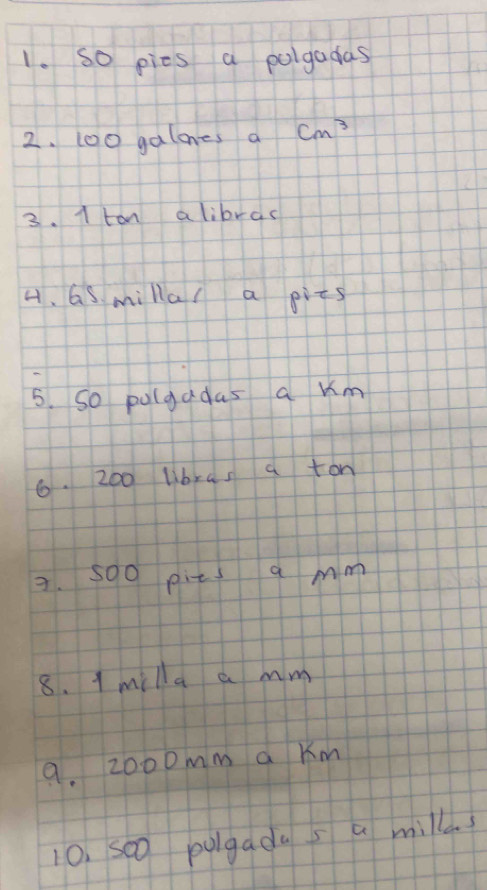 1. 50 pies a pulgadas
2. 100 galones a Cm³
3. 1 ton a libras
4. 65 millas a pies
5. 50 pulgadas a Km
6. 200 libras a ton
7. 500 pies a mm
8. 1 milla a mm
9. 2000mm a Km
10. 500 pulgadas a millas